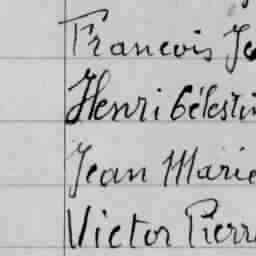 Francois Je
Henri Célestin
Jean Marie
Victor Pierre